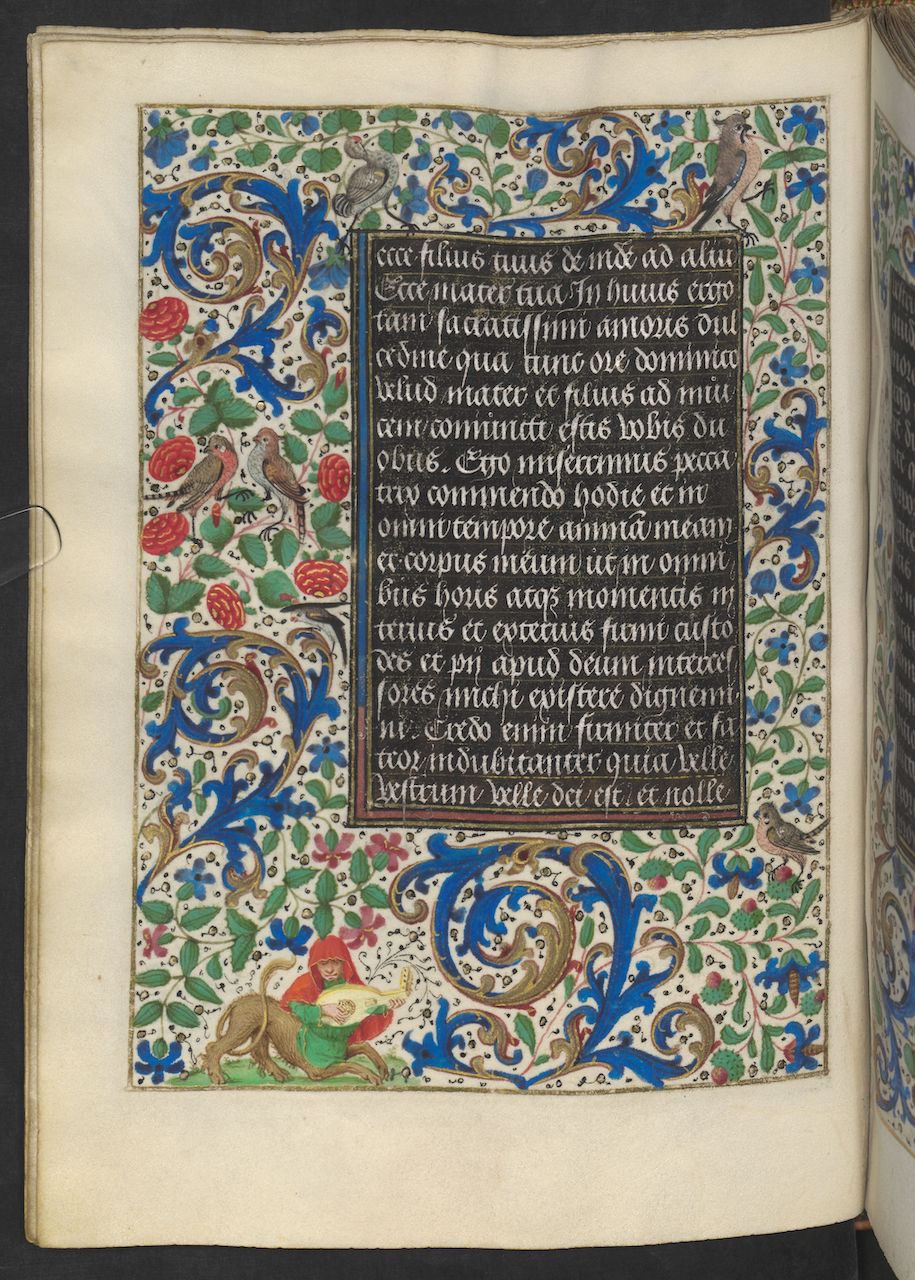 ecce filius tuus de inde ad aliū
Ecce mater tua In huius ergo
tam sacratissimi amoris dul
cedine qua tunc ore dominico
velud mater et filius ad inui
cem coniuncti estis vobis du
obus. Ego miserrimus pecca
tor commendo hodie et in
omni tempore animā meam
et corpus meum ut in omni
bus horis atqꝫ momentis in
terius et exterius firmi custo
des et pij apud deum interces
sores michi existere dignemi
ni. Credo enim firmiter et fa
teor indubitanter quia velle
vestrum velle dei est et nolle